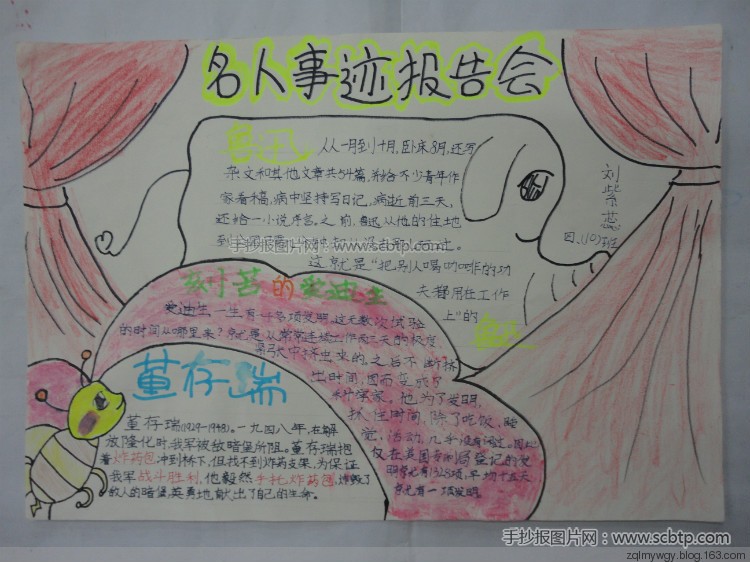 名人事迹报告会
鲁迅
从一月到十月,卧床8月,还写
杂文和其他文章共54篇,并给不少青年作
家看稿,病中坚持写日记。病逝前三天,
还给一小说序言。之前,鲁迅从他的住地
到
这就是"把别人喝咖啡的功
夫都用在工作
上"的
鲁迅
刘紫蕊
四、(10)班
刻苦的爱迪生
爱迪生一生有一千多项发明,这无数次试验
的时间从哪里来?就是从常常连续工作两三天的极度
紧张中挤出来的。之后不断挤
出时间,因而变成了
科学家。他为了发明
抓住时间,除了吃饭,睡
觉,活动,几乎没有闲过。
仅在美国专利局登记的发
明就有1328项,平均十五天
就有一项发明。
董存瑞
董存瑞(1929-1948)。一九四八年,在解
放隆化时,我军被敌暗堡所阻。董存瑞抱
着炸药包冲到桥下,但找不到炸药支架,为保证
我军战斗胜利,他毅然手托炸药包,炸毁了
敌人的暗堡,英勇地献出了自己的生命。
手抄报图片网 - www.scbtp.com
手抄报图片网 - www.scbtp.com
zqlmywgy.blog.163.com